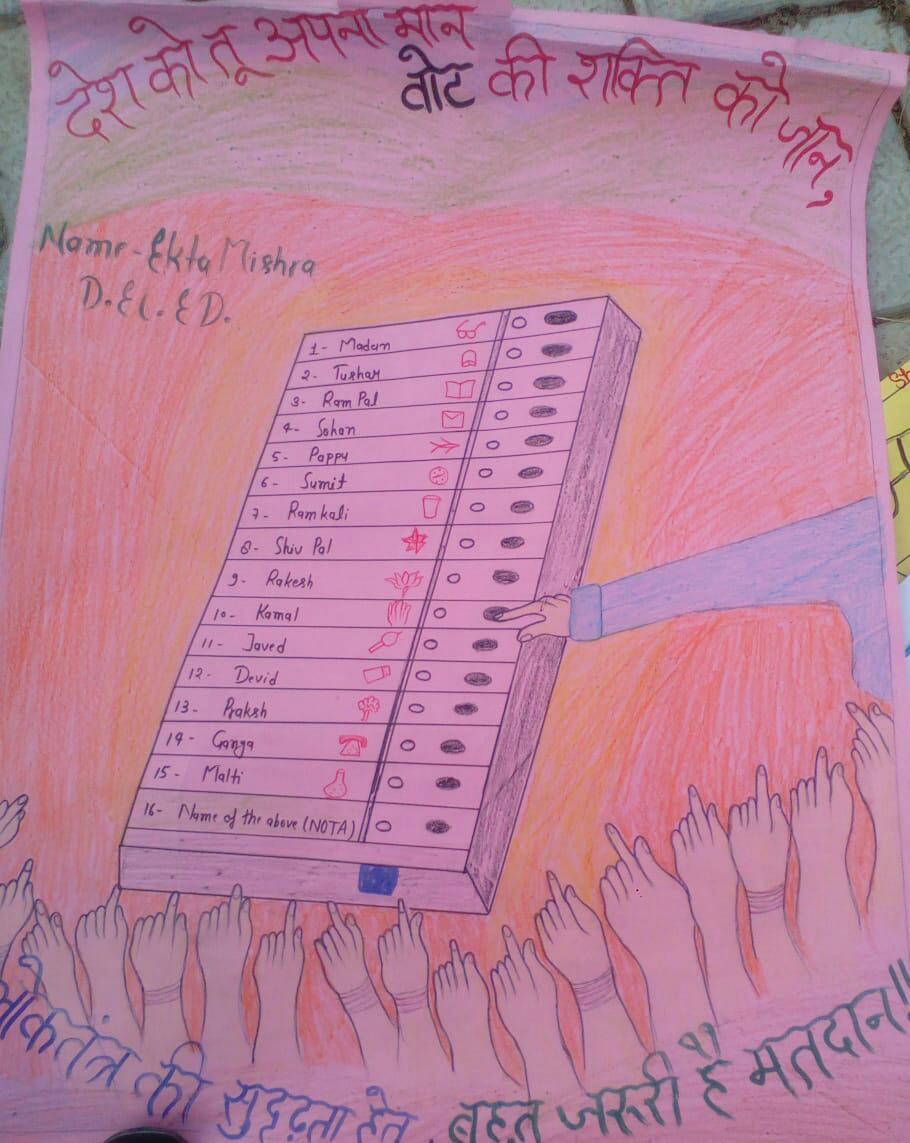 देश को तू अपना मान
वोट की शक्ति को जान,
Name - Ekta Mishra
D.El.ED.
1- Madan
2- Tushar
3- Ram Pal
4- Sohan
5- Pappu
6- Sumit
7- Ramkali
8- Shiv Pal
9- Rakesh
10- Kamal
11- Javed
12- Devid
13- Praksh
14- Ganga
15- Malti
16- Name of the above (NOTA)
लोकतंत्र की सुदृढ़ता हेतु बहुत जरूरी है मतदान!!